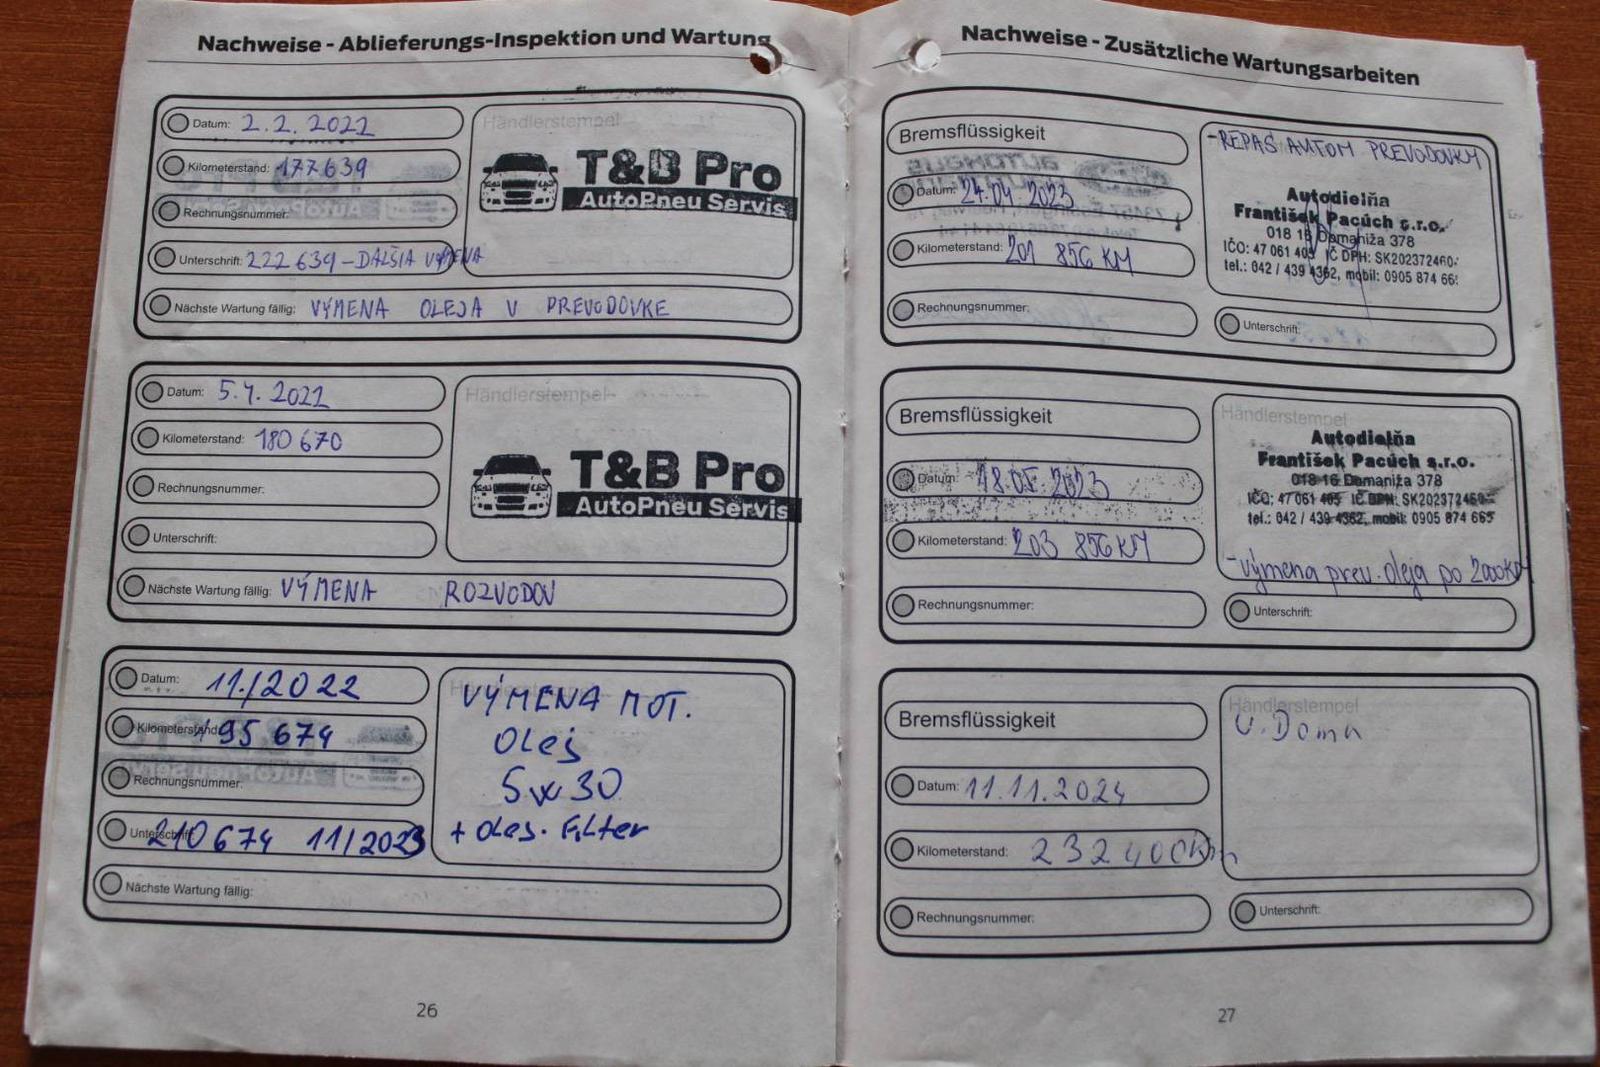 Nachweise - Ablieferungs-Inspektion und Wartung
Datum: 2.2.2022
Händlerstempel
Kilometerstand: 177639
T&B Pro
AutoPneu Servis
Rechnungsnummer:
Unterschrift: 222 639 - DALŠIA VÝMENA
Nächste Wartung fällig: VÝMENA OLEJA V PREVODOVKE
Datum: 5.4.2022
Händlerstempel
Kilometerstand: 180 670
T&B Pro
AutoPneu Servis
Rechnungsnummer:
Unterschrift:
Nächste Wartung fällig: VÝMENA ROZVODOV
Datum: 11./2022
Kilometerstand 195 674
Rechnungsnummer:
Unterschrift: 210 674 11/2023
VÝMENA MOT.
Olej
5w30
+ olej. Filter
Nächste Wartung fällig:
26
Nachweise - Zusätzliche Wartungsarbeiten
Bremsflüssigkeit
Datum: 24.04.2023
Kilometerstand: 201 856 KM
Rechnungsnummer:
-REPAS AUTOM PREVODOVKY
Autodielňa
František Pacúch s.r.o.
018 16 Domaniža 378
IČO: 47 061 405 IČ DPH: SK202372460
tel.: 042 / 439 4362, mobil: 0905 874 66
Unterschrift:
Bremsflüssigkeit
Datum: 18.05.2023
Kilometerstand: 203 856 KM
Rechnungsnummer:
Händlerstempel
Autodielňa
František Pacúch s.r.o.
018 16 Domaniža 378
IČO: 47 061 405 IČ DPH: SK202372460
tel.: 042 / 439 4362, mobil: 0905 874 665
-výmena prev. oleja po 2000KM
Unterschrift:
Bremsflüssigkeit
Datum: 11.11.2024
Kilometerstand: 232 400km
Rechnungsnummer:
Händlerstempel
Unterschrift:
27